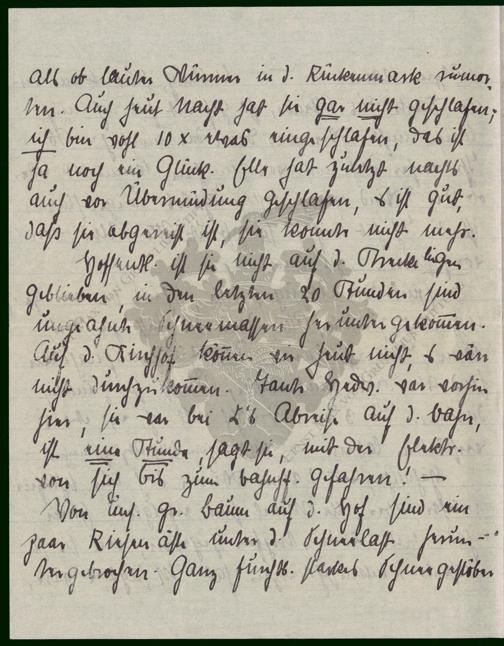 als ob lauter Würmer in d. Rückenmark rumor-
ten. Auch heut Nacht hat sie gar nicht geschlafen,
ich bin wohl 10 x etwas eingeschlafen, das ist
ja noch ein Glück. Elle hat zuletzt nachts
auch vor Übermüdung geschlafen, s ist gut,
daß sie abgereist ist, sie konnte nicht mehr.
Hoffentl. ist sie nicht auf d. Strecke liegen
geblieben, in den letzten 20 Stunden sind
ungeahnte Schneemassen heruntergekommen.
Auf d. Kirchhof können wir heut nicht, s wäre
nicht durchzukommen. Tante Hedw. war vorhin
hier, sie war bei E's Abreise auf d. Bahn,
ist eine Stunde, sagt sie, mit der Elektr.
von sich bis zum Bahnhf. gefahren! —
Von uns. gr. Baum auf d. Hof sind ein
paar Riesenäste unter d. Schneelast herun-
tergebrochen. Ganz furchtb. starkes Schneegestöber